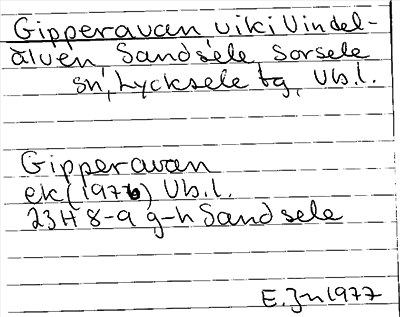 Gipperavan vik i Vindel-
älven, Sandsele, Sorsele
sn, Lycksele tg, Vb.l.
Gipperavan
ek (1976) Vb.l.
23H 8-9 g-h Sandsele
E. Jn 1977